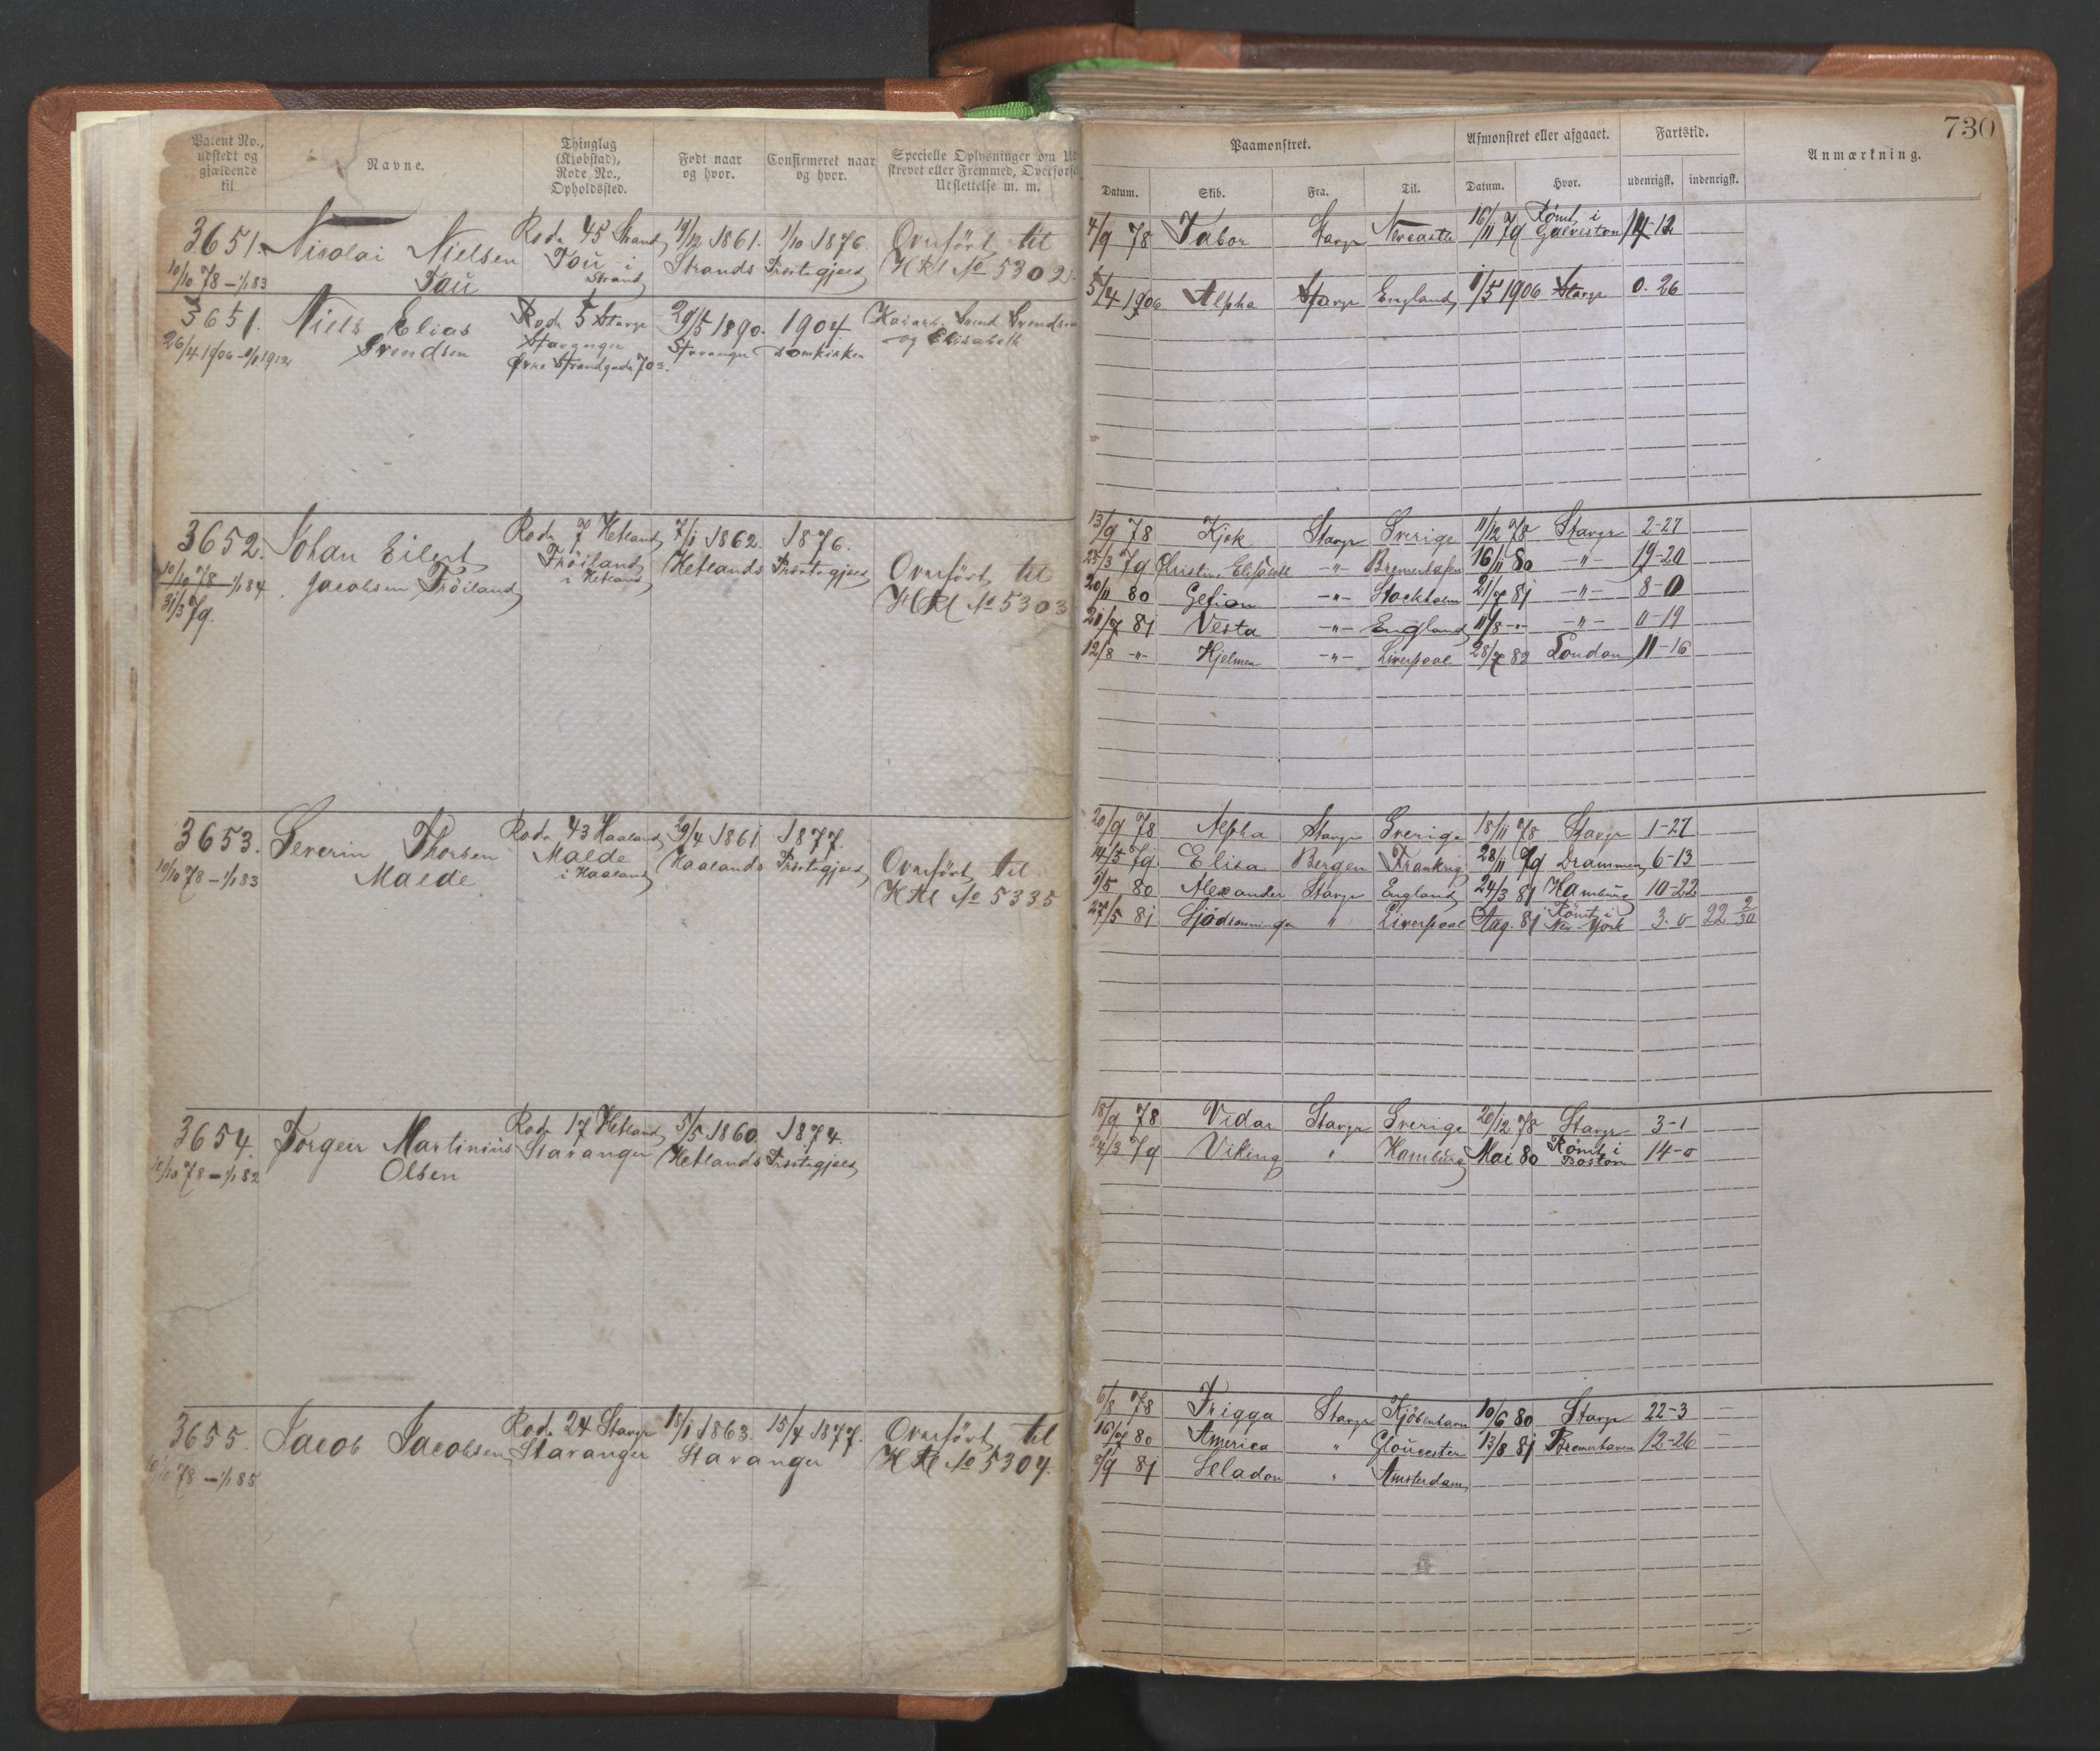 Patent No., udstedt og gjældende til
Navne.
Thinglag (Kjøbstad), Rode No., Opholdssted.
Født naar og hvor.
Confirmeret naar og hvor.
Specielle Oplysninger om Ud
skrevet eller Fremmed, Overførse
Udslettelse m. m.
3651. Nicolai Nielsen Rode 45 Strand 1861. 1/10 1876. Overført til
10/10 78 – 1/1 83 Tau Tou i Strand Strands Præstegjæld H Rl No 5302.
3651. Niels Elias Rode 5 Stavgr 29/5 1890. 1904 Svend Svendsen
26/4 1906 – 1/1 1912 Svendsen Stavanger Stavanger Domkirken og Elisabeth
Øvre Strandgade 703.
3652. Johan Eilert Rode 7 Hetland 7/1 1862. 1876.
10/10 78 – 1/1 84 Jacobsen Tröiland Tröiland i Hetland Hetlands Præstegjæld Overført til
31/3 79. H Rl No 5303
3653. Severin Thorsen Rode 43 Haaland 29/4 1861 1877.
10/10 78 – 1/1 83 Malde Malde i Haaland Haalands Præstegjæld Overført til
H Rl No 5335
3654. Torgeir Martinius Rode 17 Hetland 5/5 1860. 1874.
10/10 78 – 1/1 82 Olsen Stavanger Hetlands Præstegjæld
3655. Jacob Jacobsen Rode 24 Stavgr 18/1 1863. 15/4 1877. Overført til
10/10 78 – 1/1 85 Stavanger Stavanger H Rl No 5304.
730
Paamonstret. Afmonstret eller afgaaet. Fartstid. Anmærkning.
Datum. Skib. Fra. Til. Datum. Hvor. udenrigsk. indenrigsk.
4/9 78 Tabor Stavgr Newcastle 16/11 79 Römt i Galveston 14-12
5/4 1906 Alpha Stavgr England 1/5 1906 Stavgr 0. 26
13/9 78 Kjek Stavgr Sverige 11/12 78 Stavgr 2-27
25/3 79 Christine Elisabeth -"- Bremerhafen 16/11 80 -"- 19-20
20/11 80 Gefion -"- Stockholm 21/7 81 -"- 8-0
21/7 81 Vesta -"- England 11/8 -"- -"- 0-19
12/8 -"- Hjelmen -"- Liverpool 28/7 82 London 11-16
20/9 78 Alpha Stavgr Sverige 18/11 78 Stavgr 1-27
14/5 79 Elisa Bergen Frankrig 28/11 79 Drammen 6-13
1/5 80 Alexander Stavgr England 24/3 81 Hamburg 10-22
27/5 81 " Liverpool Aug. 81 Römt i New York 3-0 22 2/30
18/9 78 Vidar Stavgr Sverige 20/12 78 Stavgr 3-1
24/3 79 Viking " Hamburg Mai 80 Römt i Boston 14-0
6/8 78 Frigga Stavgr Kjöbenhavn 10/6 80 Stavgr 22-3
16/7 80 America " Gloucester 13/8 81 Bremerhaven 12-26
/9 81 Seladon " Amsterdam